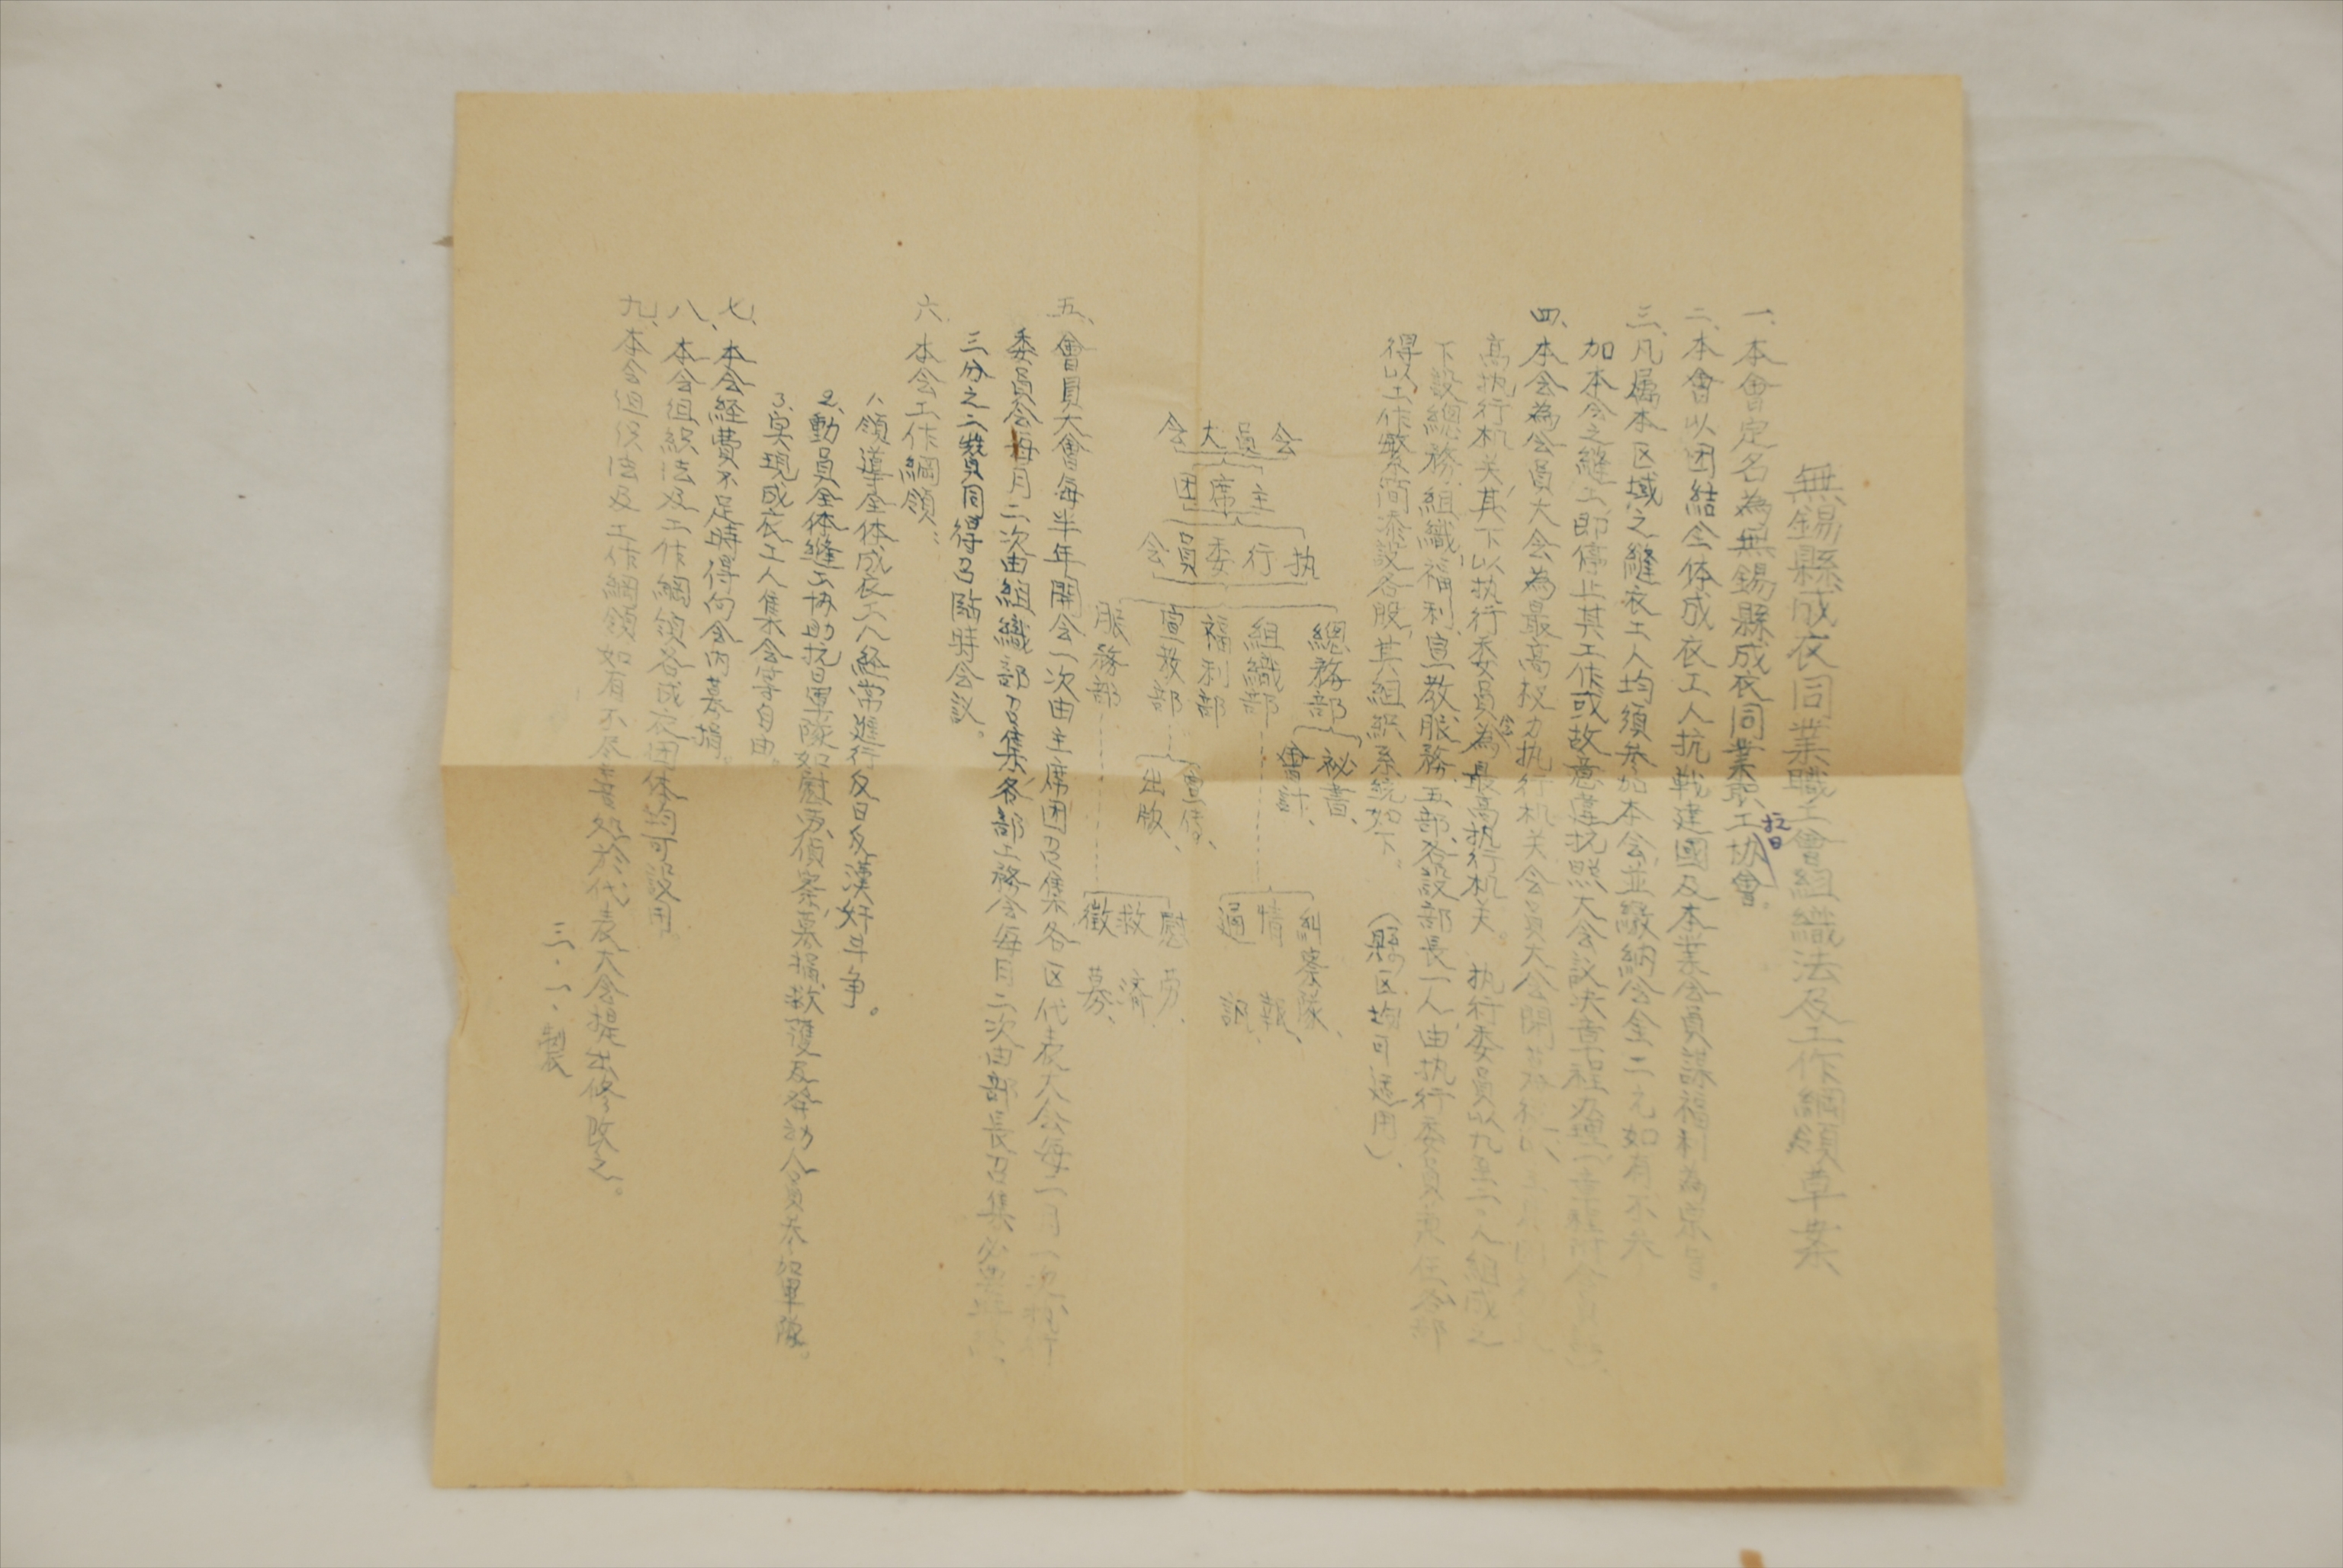 無錫縣成衣同業職工會組織法及工作綱領草案
一、本會定名為無錫縣成衣同業职工抗日协會。
二、本會以团結全体成衣工人抗戰建國及本業会員謀福利為宗旨。
三、凡屬本区域之縫衣工人均須参加本会，並缴納会金二元如有不参
加本会之縫工即停止其工作或故意違抗照大会议决章程办理
四、本会為会員大会為最高权力执行机关会員大会閉幕后以
高执行机关其下以执行委員会為最高执行机关。执行委員以九至 人組成之
下設總務、組織、福利、宣教、服務、五部、各設部長一人由执行委員兼任各部
得以工作繁简添設各股，其組織系統如下。（縣区均可适用）、
会員大会
主席团
执行委員会
總務部
組織部
福利部
宣教部
服務部
祕書、
會計、
宣传、
出版、
糾察隊、
情報、
通訊、
慰劳、
救濟、
徵募、
五、會員大會每半年開会一次由主席团召集各区代表大会每一月一次执行
委員会每月二次由組織部召集各部工務会每月二次由部長召集必要時
三分之二贊同得召臨時会议。
六、本会工作綱領：
1、領導全体成衣工人经常進行反日反漢奸斗争。
2、動員全体縫工协助抗日軍隊如慰劳偵察、募捐、救護及發动人員参加軍隊。
3、实現成衣工人集会等自由。
七、本会経費不足時得向会內募捐。
八、本会组织法及工作綱領各成衣团体均可設用
九、本会组织法及工作綱領如有不尽善处於代表大会提出修改之。
三・一・製